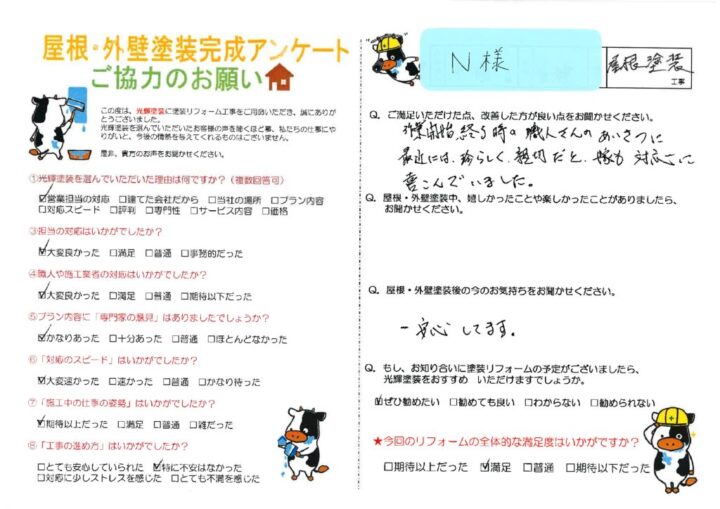 屋根・外壁塗装完成アンケート
ご協力のお願い
この度は、光輝塗装に塗装リフォーム工事をご用命いただき、誠にありが
とうございました。
光輝塗装を選んでいただいたお客様の声を聞くほど事、私たちの仕事にや
りがいと、今後の情熱を与えてくれるものはございません。
是非、貴方のお声をお聞かせください。
①光輝塗装を選んでいただいた理由は何ですか？（複数回答可）
☑営業担当の対応 □建てた会社だから □当社の場所 □プラン内容
□対応スピード □評判 □専門性 □サービス内容 □価格
③担当の対応はいかがでしたか？
☑大変良かった □満足 □普通 □事務的だった
④職人や施工業者の対応はいかがでしたか？
☑大変良かった □満足 □普通 □期待以下だった
⑤プラン内容に「専門家の意見」はありましたでしょうか？
☑かなりあった □十分あった □普通 □ほとんどなかった
⑥「対応のスピード」はいかがでしたか？
☑大変速かった □速かった □普通 □かなり待った
⑦「施工中の仕事の姿勢」はいかがでしたか？
☑期待以上だった □満足 □普通 □雑だった
⑧「工事の進め方」はいかがでしたか？
□とても安心していられた ☑特に不安はなかった
□対応に少しストレスを感じた □とても不満を感じた
N様
屋根塗装
工事
Q. ご満足いただけた点、改善した方が良い点をお聞かせください。
作業開始終る時の職人さんのあいさつに
最近には、珍らしく、親切だと、嫁も対応さに
喜こんでいました。
Q. 屋根・外壁塗装中、嬉しかったことや楽しかったことがありましたら、
お聞かせください。
Q. 屋根・外壁塗装後の今のお気持ちをお聞かせください。
一安心してます。
Q. もし、お知り合いに塗装リフォームの予定がございましたら、
光輝塗装をおすすめ いただけますでしょうか。
☑ぜひ勧めたい □勧めても良い □わからない □勧められない
★今回のリフォームの全体的な満足度はいかがですか？
□期待以上だった ☑満足 □普通 □期待以下だった